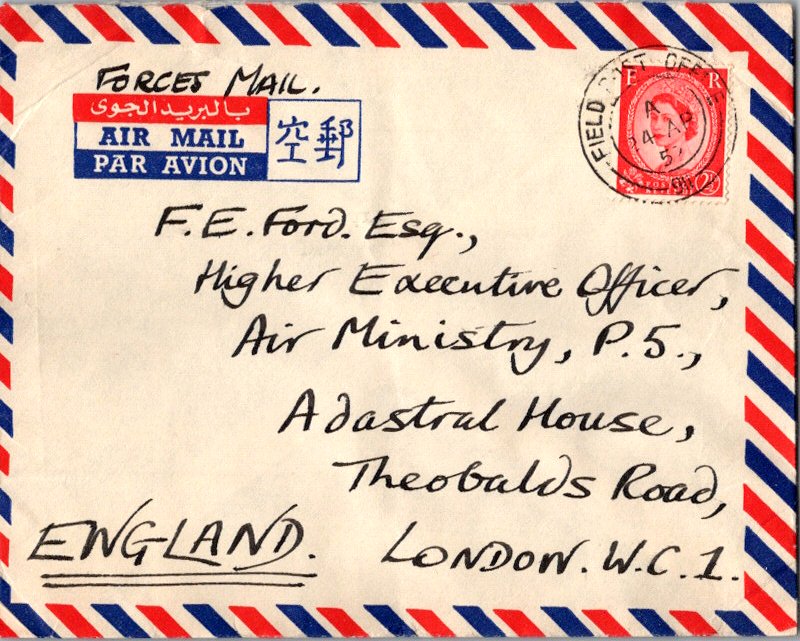 FORCES MAIL.
بالبريد الجوى
AIR MAIL
PAR AVION
空郵
FIELD POST OFFICE
A
24 AP
57
E R
F.E. Ford. Esq.,
Higher Executive Officer,
Air Ministry, P.5.,
Adastral House,
Theobalds Road,
LONDON. W.C.1.
ENGLAND.